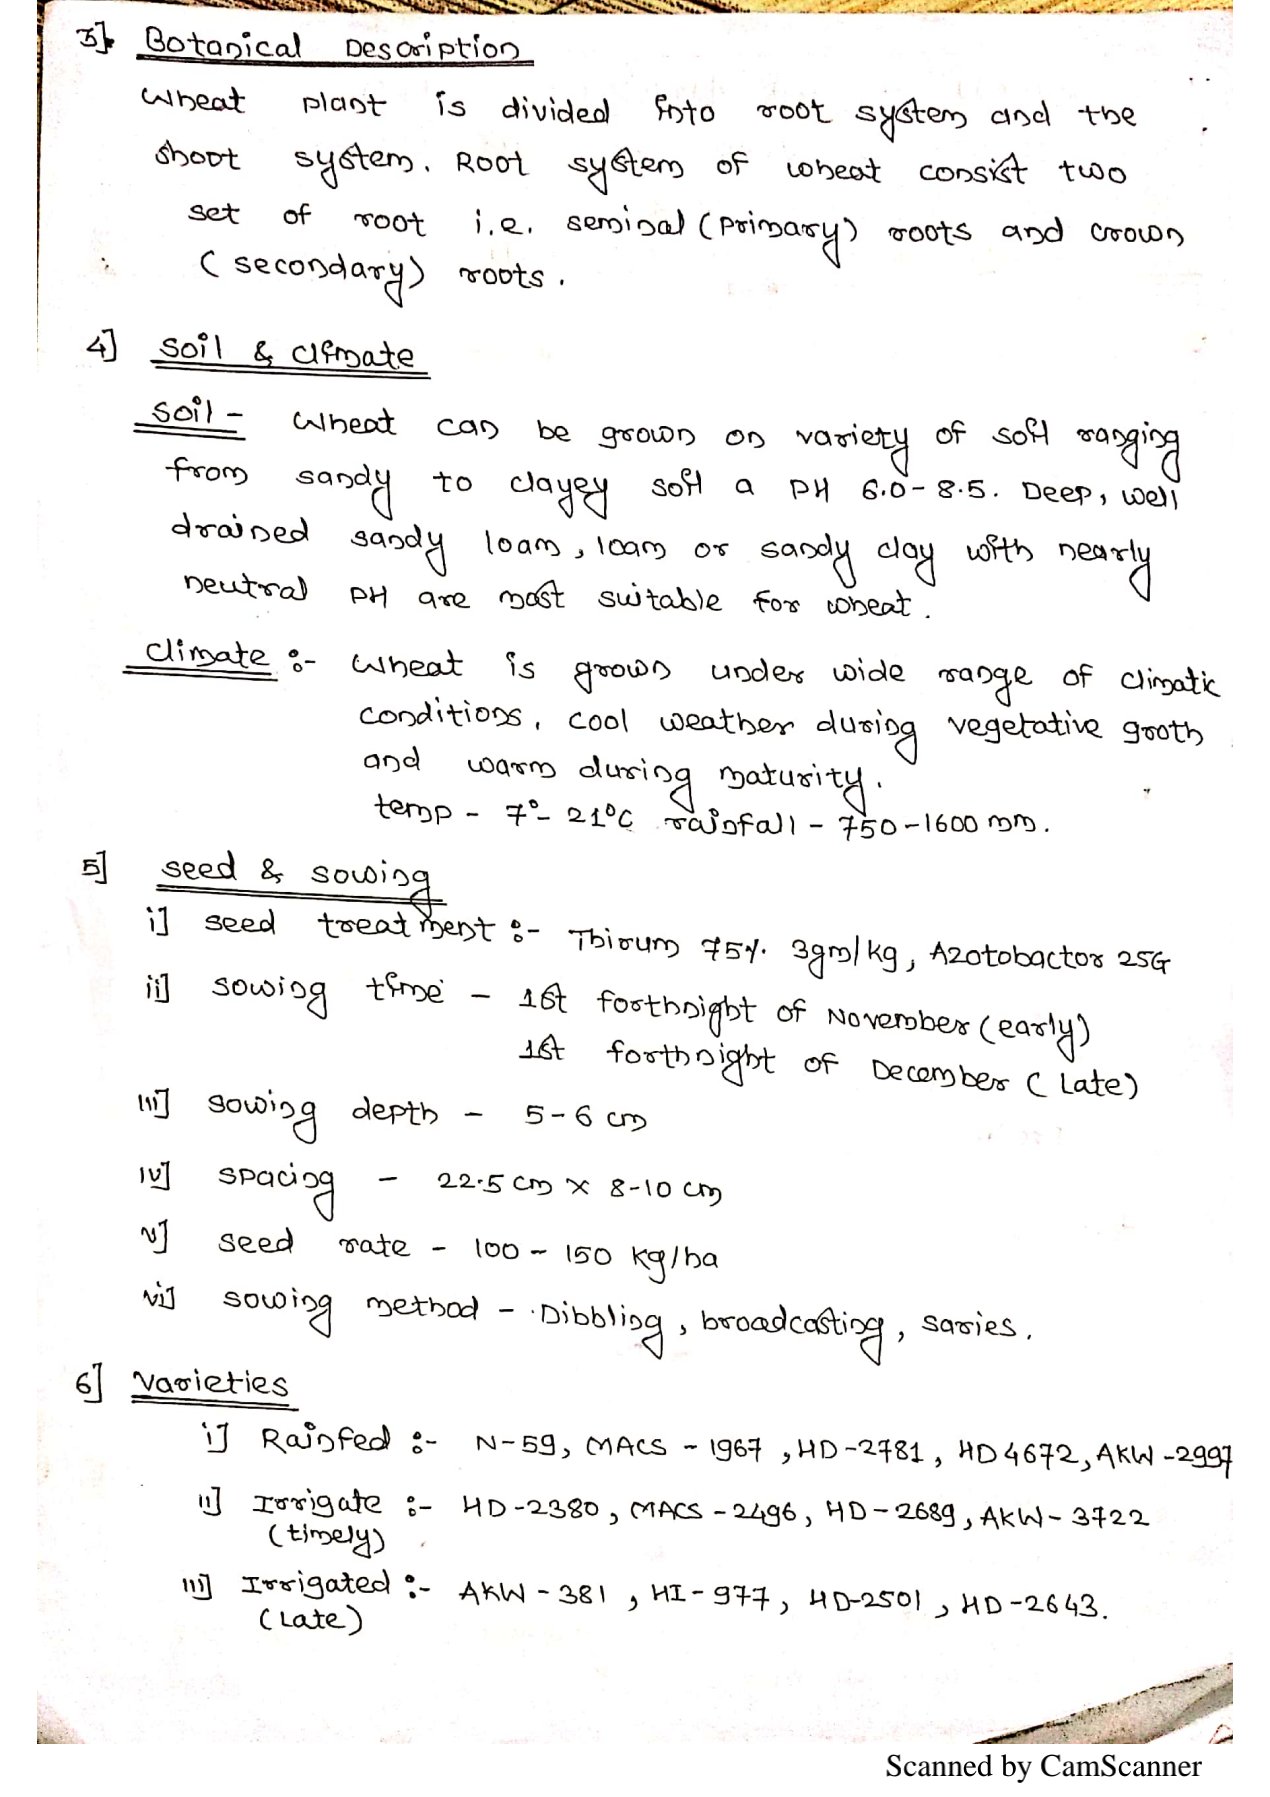 3] Botanical Description
Wheat plant is divided into root system and the
shoot system. Root system of wheat consist two
set of root i.e. seminal (Primary) roots and crown
(secondary) roots.
4] Soil & Climate
Soil - Wheat can be grown on variety of soil ranging
from sandy to clayey soil a PH 6.0-8.5. Deep, well
drained sandy loam, loam or sandy clay with nearly
neutral PH are most suitable for wheat.
Climate :- Wheat is grown under wide range of climatic
conditions. Cool weather during vegetative groth
and warm during maturity.
temp - 7°- 21°C rainfall - 750-1600 mm.
5] Seed & Sowing
i] Seed treatment :- Thirum 75%. 3gm/kg, Azotobactor 25G
ii] Sowing time - 1st forthnight of November (early)
1st forthnight of December (Late)
iii] Sowing depth - 5-6 cm
iv] Spacing - 22.5 cm x 8-10 cm
v] Seed rate - 100 - 150 kg/ha
vi] Sowing method - Dibbling, broadcasting, saries.
6] Varieties
i] Rainfed :- N-59, MACS - 1967, HD-2781, HD 4672, AKW -2997
ii] Irrigate :- HD-2380, MACS-2496, HD-2689, AKW-3722
(timely)
iii] Irrigated :- AKW-381, HI-977, HD-2501, HD-2643.
(Late)
Scanned by CamScanner